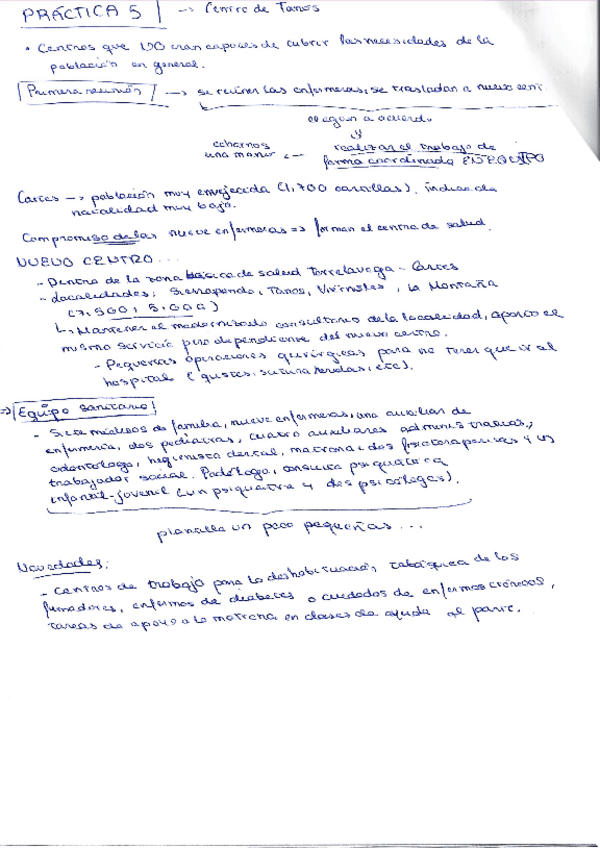 PRÁCTICA 5 → Centro de Tanos
• Centros que NO eran capaces de cubrir las necesidades de la
población en general.
Primera reunión → se reúnen las enfermeras, se trasladan a nuevo centr
llegan a acuerdo
echarnos realizar el trabajo de
una mano ← forma coordinada EN EQUIPO
Cartes → población muy envejecida (1,700 cartillas). índice de
natalidad muy bajo.
Compromiso de las nueve enfermeras => forman el centro de salud.
NUEVO CENTRO...
- Dentro de la zona básica de salud Torrelavega - Cartes
- Localidades: Sierrapando, Tanos, Viérnoles, La Montaña
(7.500, 5.000)
↳ Mantener el modernizado consultorio de la localidad, aporta el
mismo servicio pero dependiente del nuevo centro.
- Pequeñas operaciones quirúrgicas para no tener que ir al
hospital (quistes, sutura heridas, etc).
⇒ Equipo sanitario
- Siete médicos de familia, nueve enfermeras, una auxiliar de
enfermería, dos pediatras, cuatro auxiliares administrativas,
odontólogo, higienista dental, matrona, dos fisioterapeutas y un
trabajador social. Podólogo, consulta psiquiátrica
infantil-juvenil (un psiquiatra y dos psicólogos).
plantilla un poco pequeñas...
Novedades:
- Centros de trabajo para la deshabituación tabáquica de los
fumadores, enfermos de diabetes o cuidados de enfermos crónicos,
tareas de apoyo a la matrona en clases de ayuda al parto.